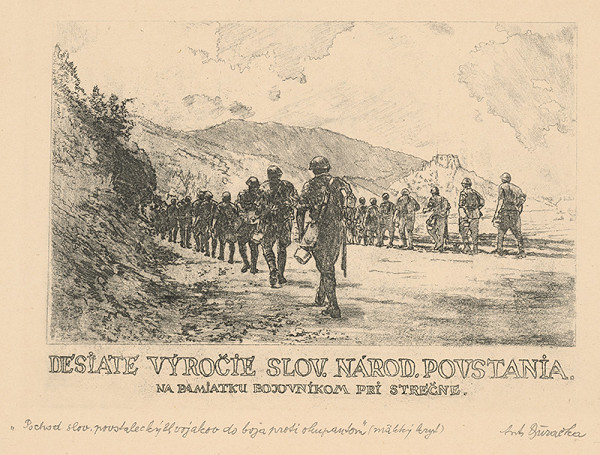 DESIATE VÝROČIE SLOV. NÁROD. POVSTANIA.
NA PAMIATKU BOJOVNÍKOM PRI STREČNE.
„Pochod slov. povstaleckých vojakov do boja proti okupantom" (mäkký kryt) Ant. Djuračka